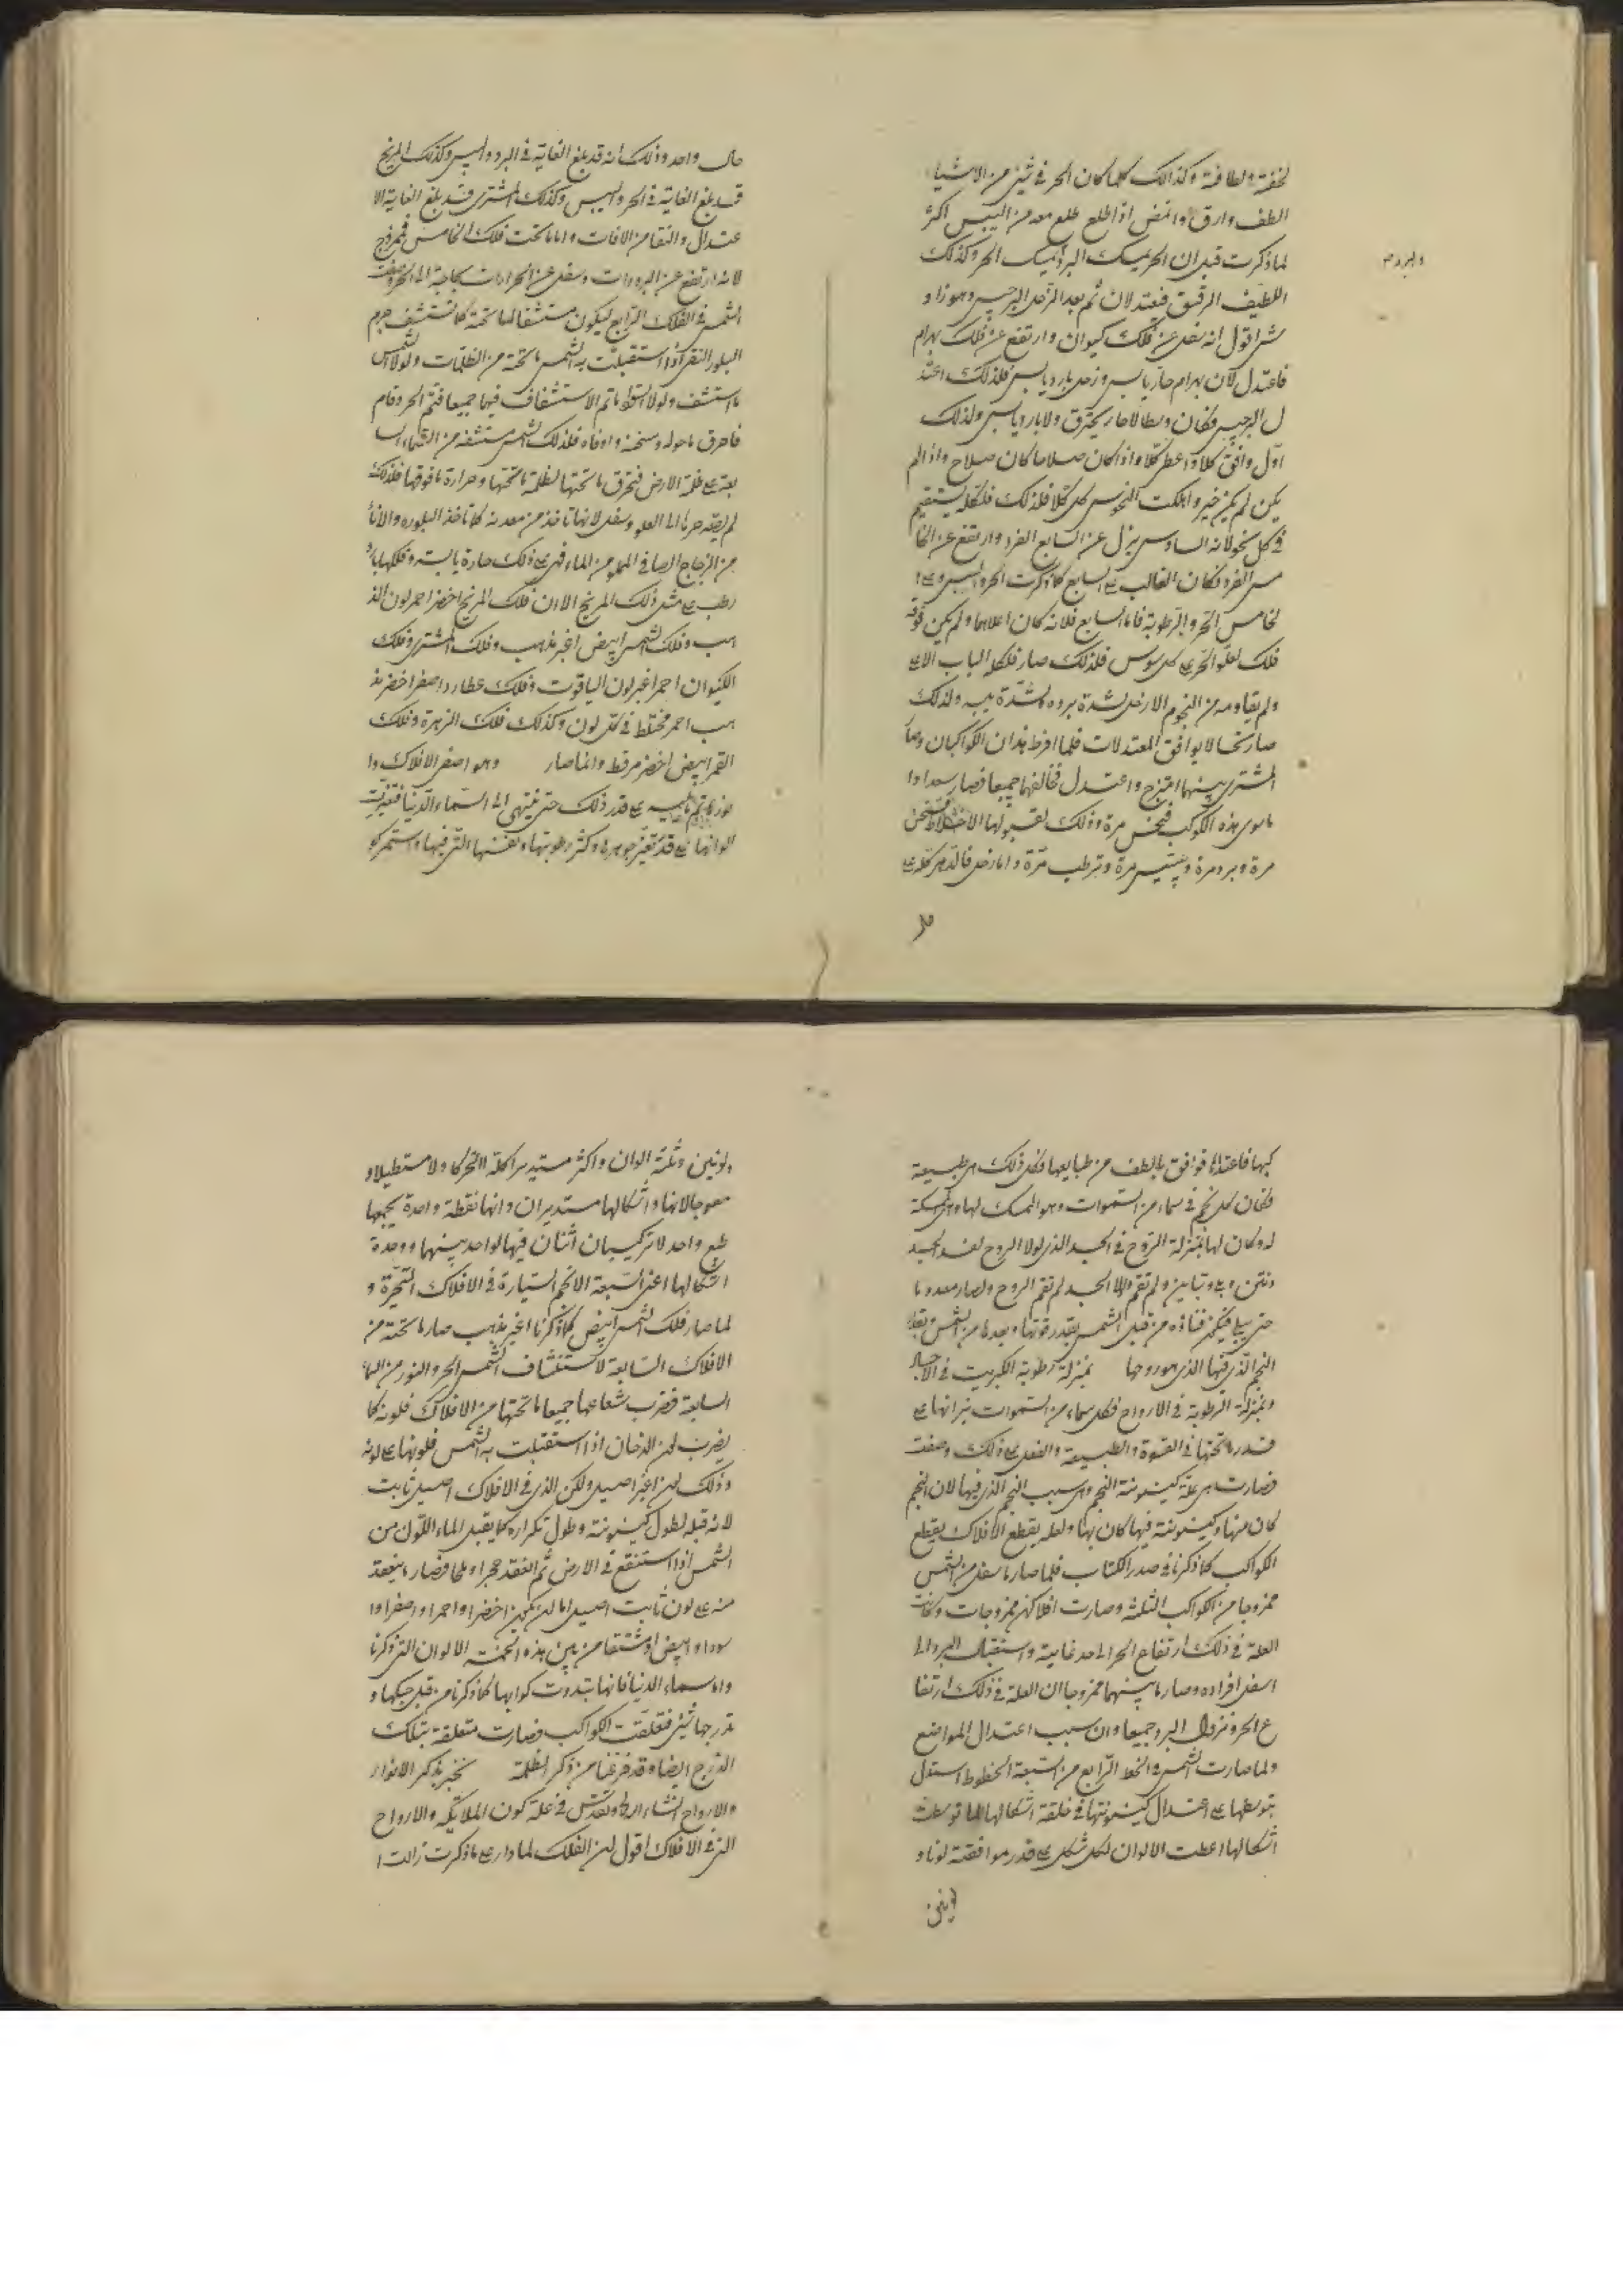 لخفته ولطافته وكذالك كلما كان الحر فى شئ من الاشيا
الطف وارق وانقص اذا طلع طلع معه من اليبس اكثر
لما ذكرت قبل ان الحر يمسك البرد يمسك الحر وكذلك
اللطيف الرقيق فيعتدلان ثم بعد الزحل البرجيس وهو زاو
ش اقول انه سفل عن فلك كيوان وارتفع عن فلك بهرام
فاعتدل لان بهرام حار يابس وزحل بارد يابس فلذلك اعتد
ل البرجيس فكان وسطا لا حار يحترق ولا بارد يابس ولذلك
اول وافق كلا واعطى كلا واذا كان صلاحا كان صلاح واذا لم
يكن لم يكن خير واهلكت النحوس كل كلا فلذلك فلكله يستقيم
فى كل نحو لانه السادس نزل عن السابع الفرد وارتفع عن الخا
مس الفرد فكان الغالب على السابع كما ذكرت الحر واليبس وعلى ا
لخامس الحر والرطوبة فاما السابع فلانه كان اعلاها ولم يكن فوقه
فلك لعلو الحر على كل سوس فلذلك صار فلكه الباب الاعلى
ولم يقاومه من النجوم الا زحل لشدة برده وشدة يبسه ولذلك
صار نحسا لا يوافق المعتدلات فلما افرط هذان الكوكبان وصا
المشترى بينهما امتزج واعتدل فخالفهما جميعا فصار سعدا وا
ما سوى هذه الكوكب فنحس مرة وذلك لقبولها الاختلاط فتسخن
مرة وبرد مرة وييبس مرة وترطب مرة واما زحل فالدهر كله على
حال واحد وذلك انه قد بلغ الغاية فى البرد واليبس وكذلك المريخ
قد بلغ الغاية فى الحر واليبس وكذلك المشترى قد بلغ الغاية الا
عتدال والنقا من الافات واما ما تحت فلك الخامس فممزوج
لانه ارتفع عن البرودات وسفل عن الحرارات بحاجة الى الحر وصفت
الشمس فى الفلك الرابع ليكون مستشفا لما تحته كما تستشف جرم
البلور النقى اذا استقبلت به الشمس ما تحته من الظلمات ولولا الشمس
ما استشف ولولا البلور ما تم الاستشفاف فيهما جميعا فتم الحر وقام
فاحرق ما حوله وسخنه واوفاه فلذلك الشمس مستشفه من السماء السا
بعة على ظلمة الارض فتحرق ما تحتها لظلمة ما تحتها وحرارة ما فوقها فلذلك
لم يصر حرها الى العلو وسفل لانها تاخذ من معدنه كما تاخذ البلوره والانا
من الزجاج الصافى المملو من الماء فهى على ذلك حارة يابسة وفلكها بارد
رطب على مثل ذلك المريخ الا ان فلك المريخ اخضر احمر لون الذ
هب وفلك الشمس ابيض اغبر مذهب وفلك المشترى وفلك
الكيوان احمر اغبر لون الياقوت وفلك عطارد اصفر اخضر مذ
هب احمر مختلط فى كل لون وكذلك فلك الزهرة وفلك
القمر ابيض اخضر مرقط وانما صار وهو اصغر الافلاك وا
على قدر ذلك حتى ينتهى الى السماء الدنيا فتغيرت
الوانها على قدر تغير جوهرها وكثر رطوبتها وتفننها التى فيها واستمر كو
كبها فاعتدالها توافق ما لطف من طبايعها فكل ذلك من طبيعة
فكان لكل نجم فى سماء من السموات وهو الممسك لها وهى الممسكة
له وكان لها بمنزلة الروح فى الجسد الذى لولا الروح لفسد الجسد
ونتن وبلى وتباين ولم تقم ولولا الجسد لم تقم الروح ولصار معدوما
حتى بلى فيكون فناؤه من قبل الشمس بقدر قوتها وبعدها من الشمس وبعد
النجم الذى فيها الذى هو روحها بمنزلة رطوبة الكبريت فى الاحجار
وبمنزلة الرطوبة فى الارواح فكل سماء من السموات نيرانها على
قدر ما تحتها فى القوة والطبيعة والفعل على ذلك وصفت
فصارت هى علة كينونة النجم وهى سبب النجم الذى فيها لان النجم
كان منها وكينونته فيها كان بها ولعله يقطع الافلاك يقطع
الكواكب كما ذكرنا فى صدر الكتاب فلما صار ما سفل من الشمس
ممزوجا من الكواكب الثلثة وصارت افلاكهن ممزوجات وكانت
العلة فى ذلك ارتفاع الحر الى حد غايته واستقبال البرد الى
اسفل افراده وصار ما بينهما ممزوجا ان العلة فى ذلك ارتفا
ع الحر ونزول البرد جميعا وان سبب اعتدال المواضع
ولما صارت الشمس فى الخط الرابع من السبعة الخطوط استدل
بتوسطها على اعتدال كينونتها فى خلقة اشكالها لما توسطت
اشكالها اعطت الالوان لكل شكل على قدر موافقته لونا و
لونين
ولونين وثلثة الوان واكثر مستديرا كلها لا متحركا ولا مستطيلا و
معوجا لانها واشكالها مستديران وانها نقطة واحدة يجمعها
طبع واحد لا تركيبان اثنان فيها لواحد بينهما ووحدة
اشكالها اعنى السبعة الانجم السيارة فى الافلاك المتحيرة و
لما صار فلك الشمس ابيض كما ذكرنا اغبر مذهب صار ما تحته من
الافلاك السابعة لاستنشاف الشمس الحر والنور من السماء
السابعة فضرب شعاعها جميعا ما تحتها من الافلاك فلونه كما
يضرب لون الدخان اذا استقبلت به الشمس فلونها على لونه
وذلك لون غير اصيل ولكن الذى فى الافلاك اصيل ثابت
لانه قبله لطول كينونته وطول تكراره كما يقبل الماء اللون من
الشمس اذا استنقع فى الارض ثم انعقد حجرا وملحا فصار ما ينعقد
منه على لون ثابت اصيل اما ان يكون اخضرا واحمرا واصفرا وا
سودا وابيض او مشتقا من بين هذه الخمسة الالوان التى ذكرنا
واما سماء الدنيا فانها بتدوت كواكبها كما ذكرنا من قبل حبكها و
تدرجها شئ فتعلقت الكواكب فصارت متعلقة بتلك
الدرج ايضا وقد فرغنا من ذكر الظلمة نخبر بذكر الانوار
والارواح انشاء الله ونفتش فى علة كون الملايكه والارواح
التى فى الافلاك اقول ان الفلك لما دار على ما ذكرت زالت ا